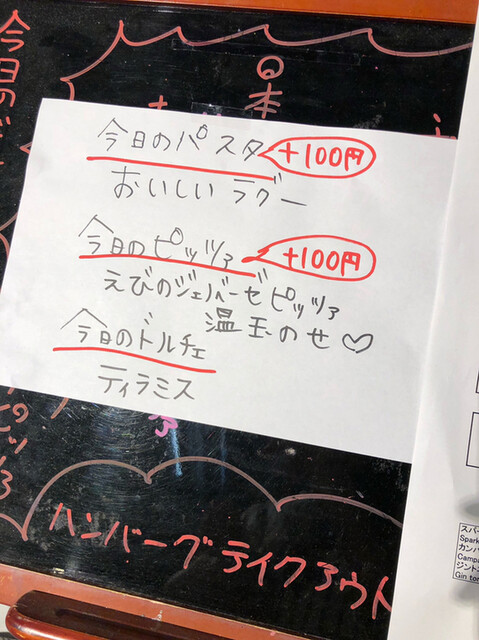 今日の
日本
今日のパスタ +100円
おいしいラグー
今日のピッツァ +100円
えびのジェノベーゼピッツァ
温玉のせ♡
今日のドルチェ
ティラミス
のピッツァ
ハンバーグテイクアウト
スパー
Spark
カンパ
Campa
ジント
Gin ton